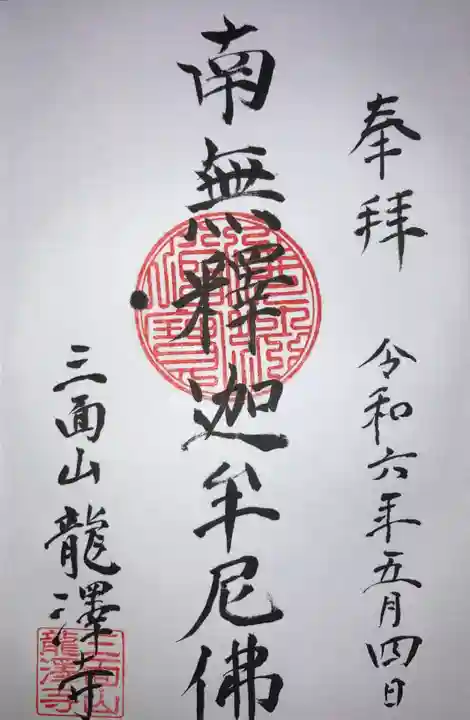 奉拝 令和六年五月四日
南無釋迦牟尼佛
三面山 龍澤寺
三面山
龍澤寺